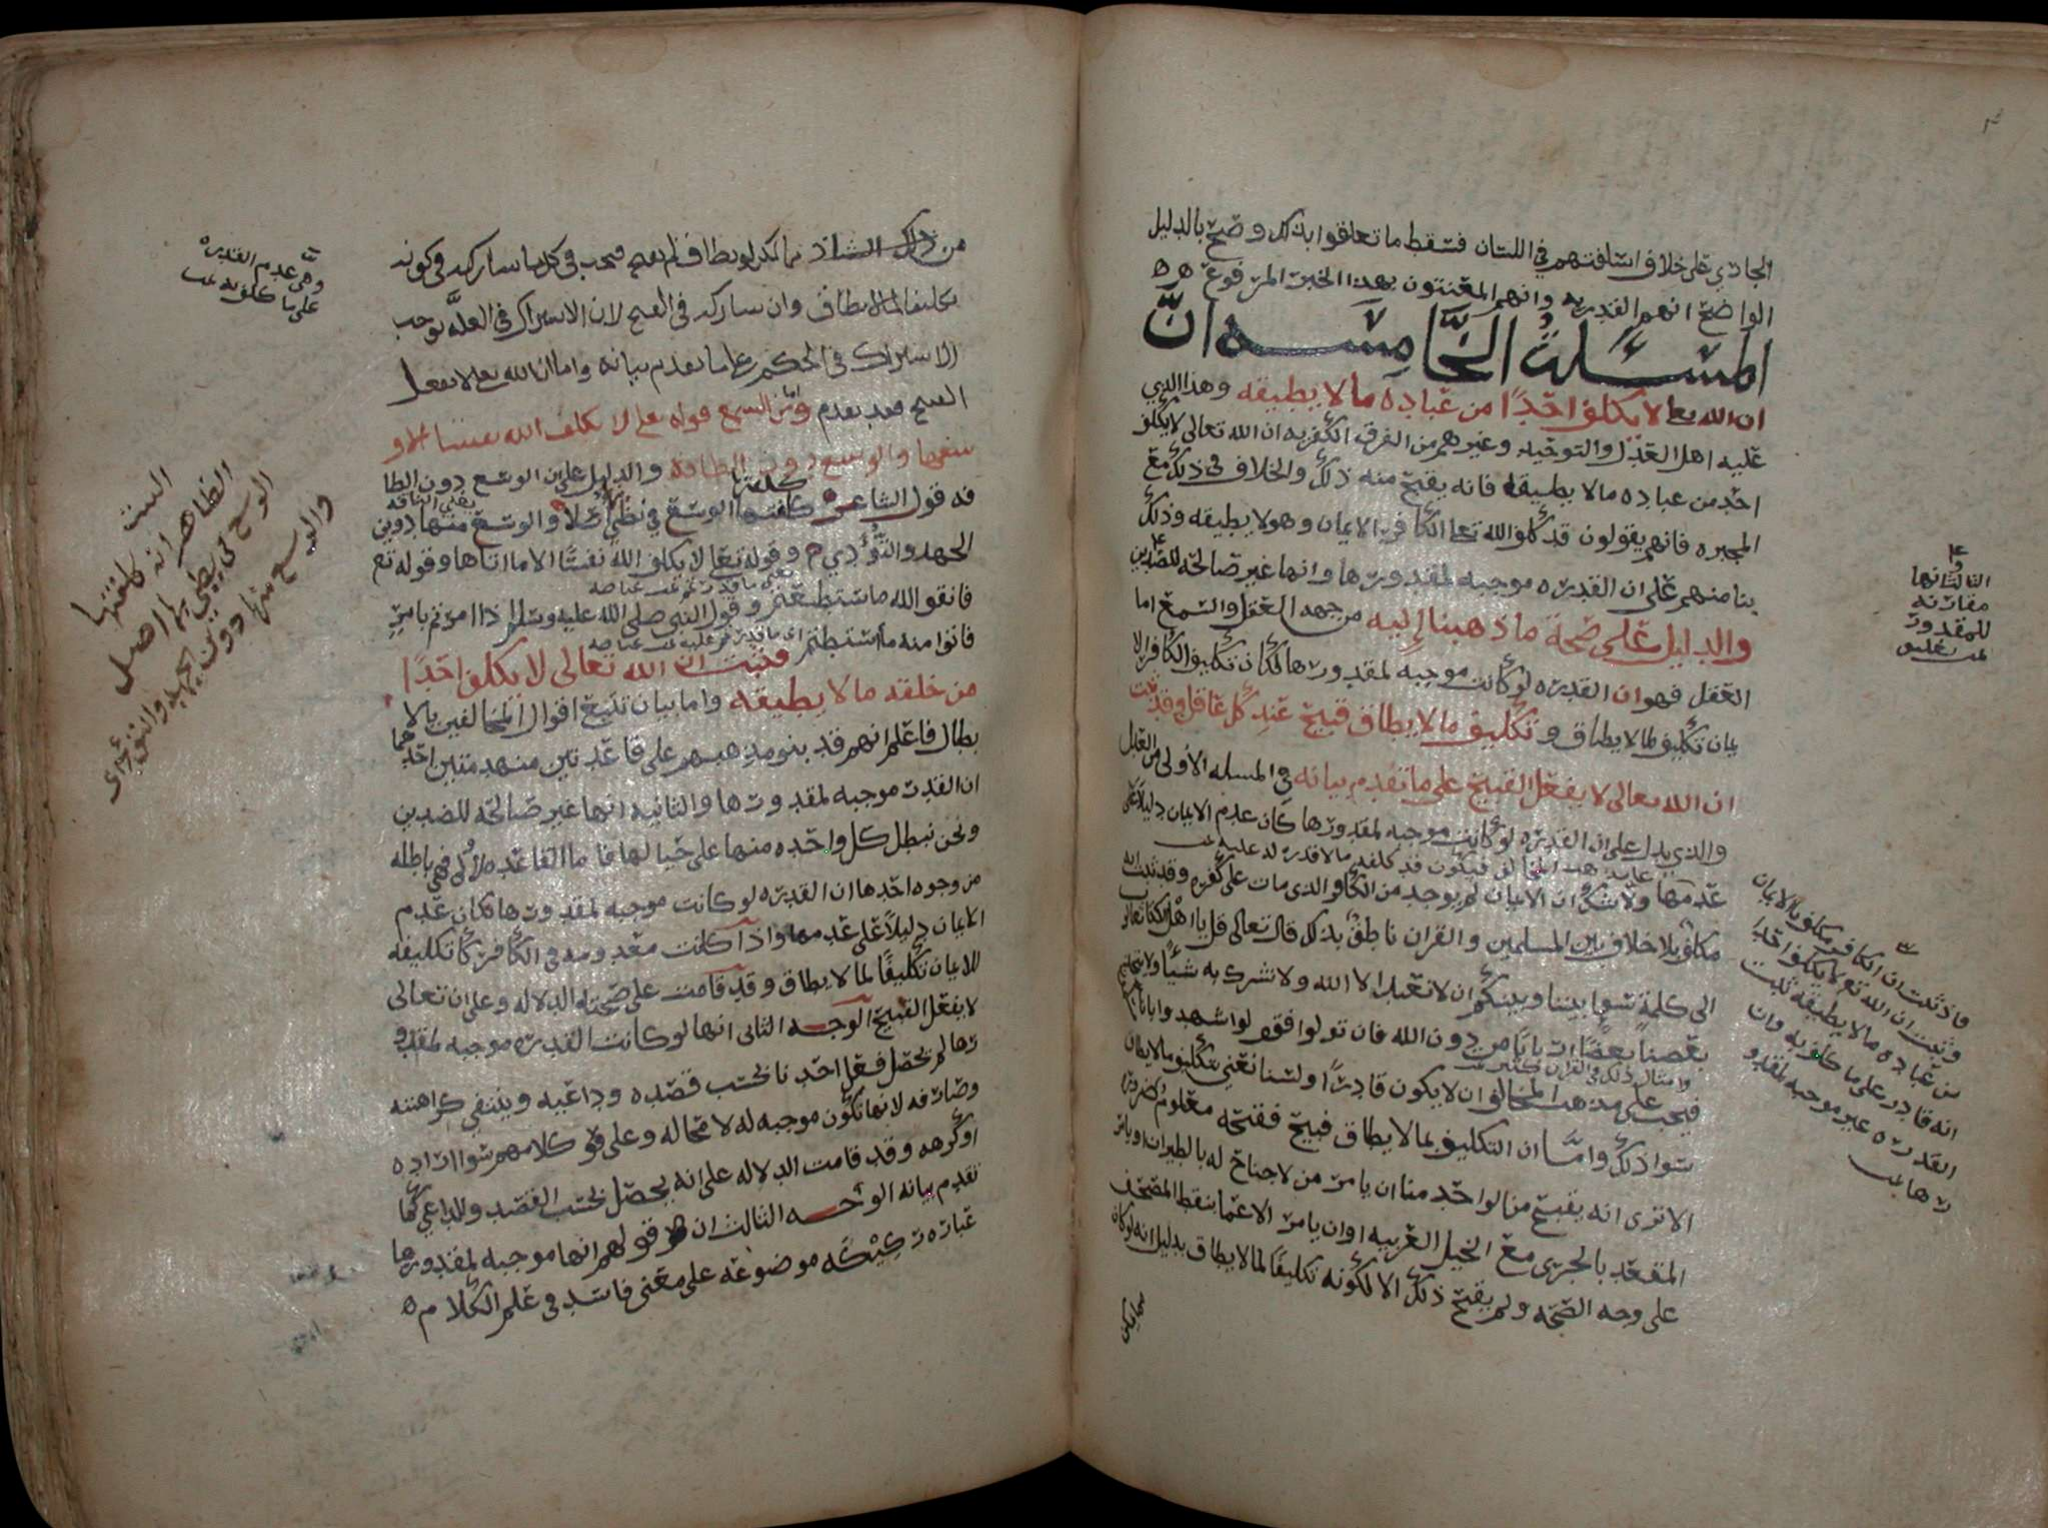 الجاري على خلاف اسلافهم في اللسان فسقط ما تعلقوا بذلك وصح بالدليل
الواضح انهم القدريه وانهم المعنتون بهذا الخبر المرفوع ه ه
المسئلة الخامسه ان
ان الله تعا لا يكلف احدًا من عباده ما لا يطيقه وهذا الذي
عليه اهل العدل والتوحيد وغيرهم من الفرق الكفريه ان الله تعالى لا يكلف
احد من عباده مالا يطيقه فانه يقبح منه ذلك والخلاف في ذلك مع
المجبره فانهم يقولون قد كلف الله تعا الكافر الايمان وهو لا يطيقه وذلك
بنا منهم على ان القدره موجبه لمقدورها وانها غير صالحه للضدين
والدليل على صحة ما ذهبنا اليه من جهه العقل والسمع اما
العقل فهو ان القدره لو كانت موجبه لمقدورها لكان تكليف الكافر الا
يمان تكليف لما لا يطاق وتكليف مالا يطاق قبيح عند كل عاقل وقد ثبت
ان الله تعالى لا يفعل القبيح على ما تقدم بيانه في المسله الاولى من العدل
والذي يدل على ان القدره لو كانت موجبه لمقدورها كان عدم الايمان دليلاً على
عدمها ولا شك ان الايمان لم يوجد من الكافر الذي مات على كفره وقد ثبت انه
مكلف بلا خلاف بين المسلمين والقران ناطق بذلك قال تعالى قل يا اهل الكتاب تعالوا
الى كلمة سوا بيننا وبينكم ان لا نعبد الا الله ولا نشرك به شيئًا ولا يتخذ
بعضنا بعضًا اربابًا من دون الله فان تولوا فقولوا اشهدوا بانا
وامثال ذلك في القران كثير تمت
فيجب على مذهب المخالف ان لا يكون قادرًا ولسنا نعني بتكليف مالا يطاق
سوا ذلك وامَّا ان التكليف بما لا يطاق قبيح فقبحه معلوم ضرورة
الا ترى انه يقبح من الواحد منا ان يامر من لا جناح له بالطيران او يامر
المقعد بالجري مع الخيل العربيه او ان يامر الاعما بنقط المصحف
على وجه الصحه ولم يقبح ذلك الا لكونه تكليفًا لما لا يطاق بدليل انه لو كان
الثالثه انها
مقارنه
للمقدور
تمت تعليق
فاذ ثبت ان الكافر مكلف بالايمان
وثبت ان الله تع لا يكلف احدا
من عباده مالا يطيقه ثبت
انه قادر على ما كلف به وان
القدره غير موجبه لمقدو
رها تمت
من ذلك
تكليفا لما لا يطاق وان شاركه في القبح لان الاشتراك في العلَّه يوجب
الاشتراك في الحكم على ما تقدم بيانه واما ان الله تعلى لا يفعل
القبيح فقد تقدم وامَّا السمع قوله تعلى لا يكلف الله نفسا الا و
سعها والوسع دون الطاقه والدليل على ان الوسع دون الطا
قه قول الشاعر كلفتها الوسع في نضي اصلاً والوسع منها دوين
الجهد والتؤدي ه وقوله تعا لا يكلف الله نفسًا الا ما اتاها وقوله تع
فاتقو الله ما استطعتم وقول النبي صلى الله عليه وسلم اذا امرتم بامرٍ
فاتوا منه ما استطعتم فثبت ان الله تعالى لا يكلف احدًا
من خلقه مالا يطيقه واما بيان تتبع اقوال المخالفين بالا
بطال فاعلم انهم قد بنو مذهبهم على قاعدتين منهدمتين احدهما
ان القدره موجبه لمقدورها والثانيه انها غير صالحه للضدين
ونحن نبطل كل واحده منها على حيالها فاما القاعده الاولى فهي باطله
من وجوه احدها ان القدره لو كانت موجبه لمقدورها لكان عدم
الايمان دليلاً على عدمها واذا كانت معدومه في الكافر كان تكليفه
للايمان تكليفًا لما لا يطاق وقد قامت على صحته الدلاله وعلى ان تعالى
لا يفعل القبيح الوجه الثاني انها لو كانت القدره موجبه لمقدو
رها لم يحصل فعل احدنا بحسب قصده وداعيه وينتفي كراهته
وصارفه لانها تكون موجبه له لا محاله وعلى قو كلامهم سوا اراده
او كرهه وقد قامت الدلاله على انه يحصل بحسب القصد والداعي كما
تقدم بيانه الوجه الثالث ان قولهم انها موجبه لمقدورها
عباره ركيكه موضوعه على معنى فاسد في علم الكلام ه
وهى عدم القدره
على ما كلف به تمت
البيت
الظاهر انه كلفتها
الوسع في نضي لها اصل
والوسع منها دون الجهد والتؤدى